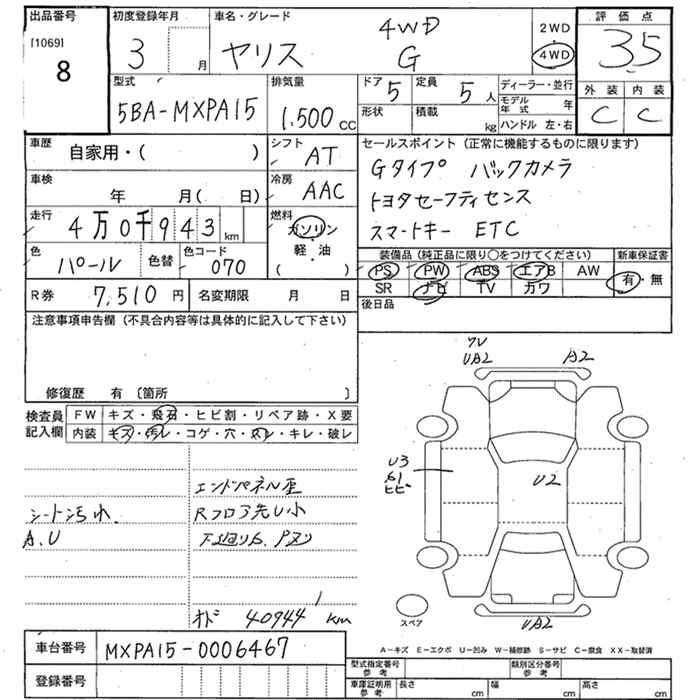 出品番号
[1069]
8
初度登録年月
3 月
車名・グレード
4WD
ヤリス G
2WD
4WD
評価点
3.5
外装 内装
C C
型式
5BA-MXPA15
排気量
1.500 CC
ドア 5
形状
定員 5 人
積載 kg
ディーラー・並行
モデル年式 年
ハンドル 左・右
車歴
自家用・( )
シフト AT
車検
年 月( 日)
冷房 AAC
走行
4万0千943 km
燃料
ガソリン
軽・油
( )
色
パール
色替
色コード
070
R券 7,510 円
名変期限 月 日
セールスポイント (正常に機能するものに限ります)
Gタイプ バックカメラ
トヨタセーフティセンス
スマートキー ETC
装備品 (純正品に限り○をつけてください)
新車保証書
PS PW ABS エアB AW
SR ナビ TV カワ
有・無
後日品
注意事項申告欄 (不具合内容等は具体的に記入して下さい)
修復歴 有 〔箇所 〕
検査員記入欄
FW キズ・飛石・ヒビ割・リペア跡・X要
内装 キズ・汚レ・コゲ・穴・ネレ・キレ・破レ
シート汚れ.
A.U
エンドパネル歪
Rフロア先U小
下廻りS.Pヌリ
オド 40944 km
ワレ
UA2
A2
U3
61
ヒビ
U2
UA2
スペア
A-キズ E-エクボ U-凹み W-補修跡 S-サビ C-腐食 XX-取替済
車台番号 MXPA15-0006467
登録番号
型式指定番号
参考
類別区分番号
参考
車庫証明用
参考
長さ cm
幅 cm
高さ cm